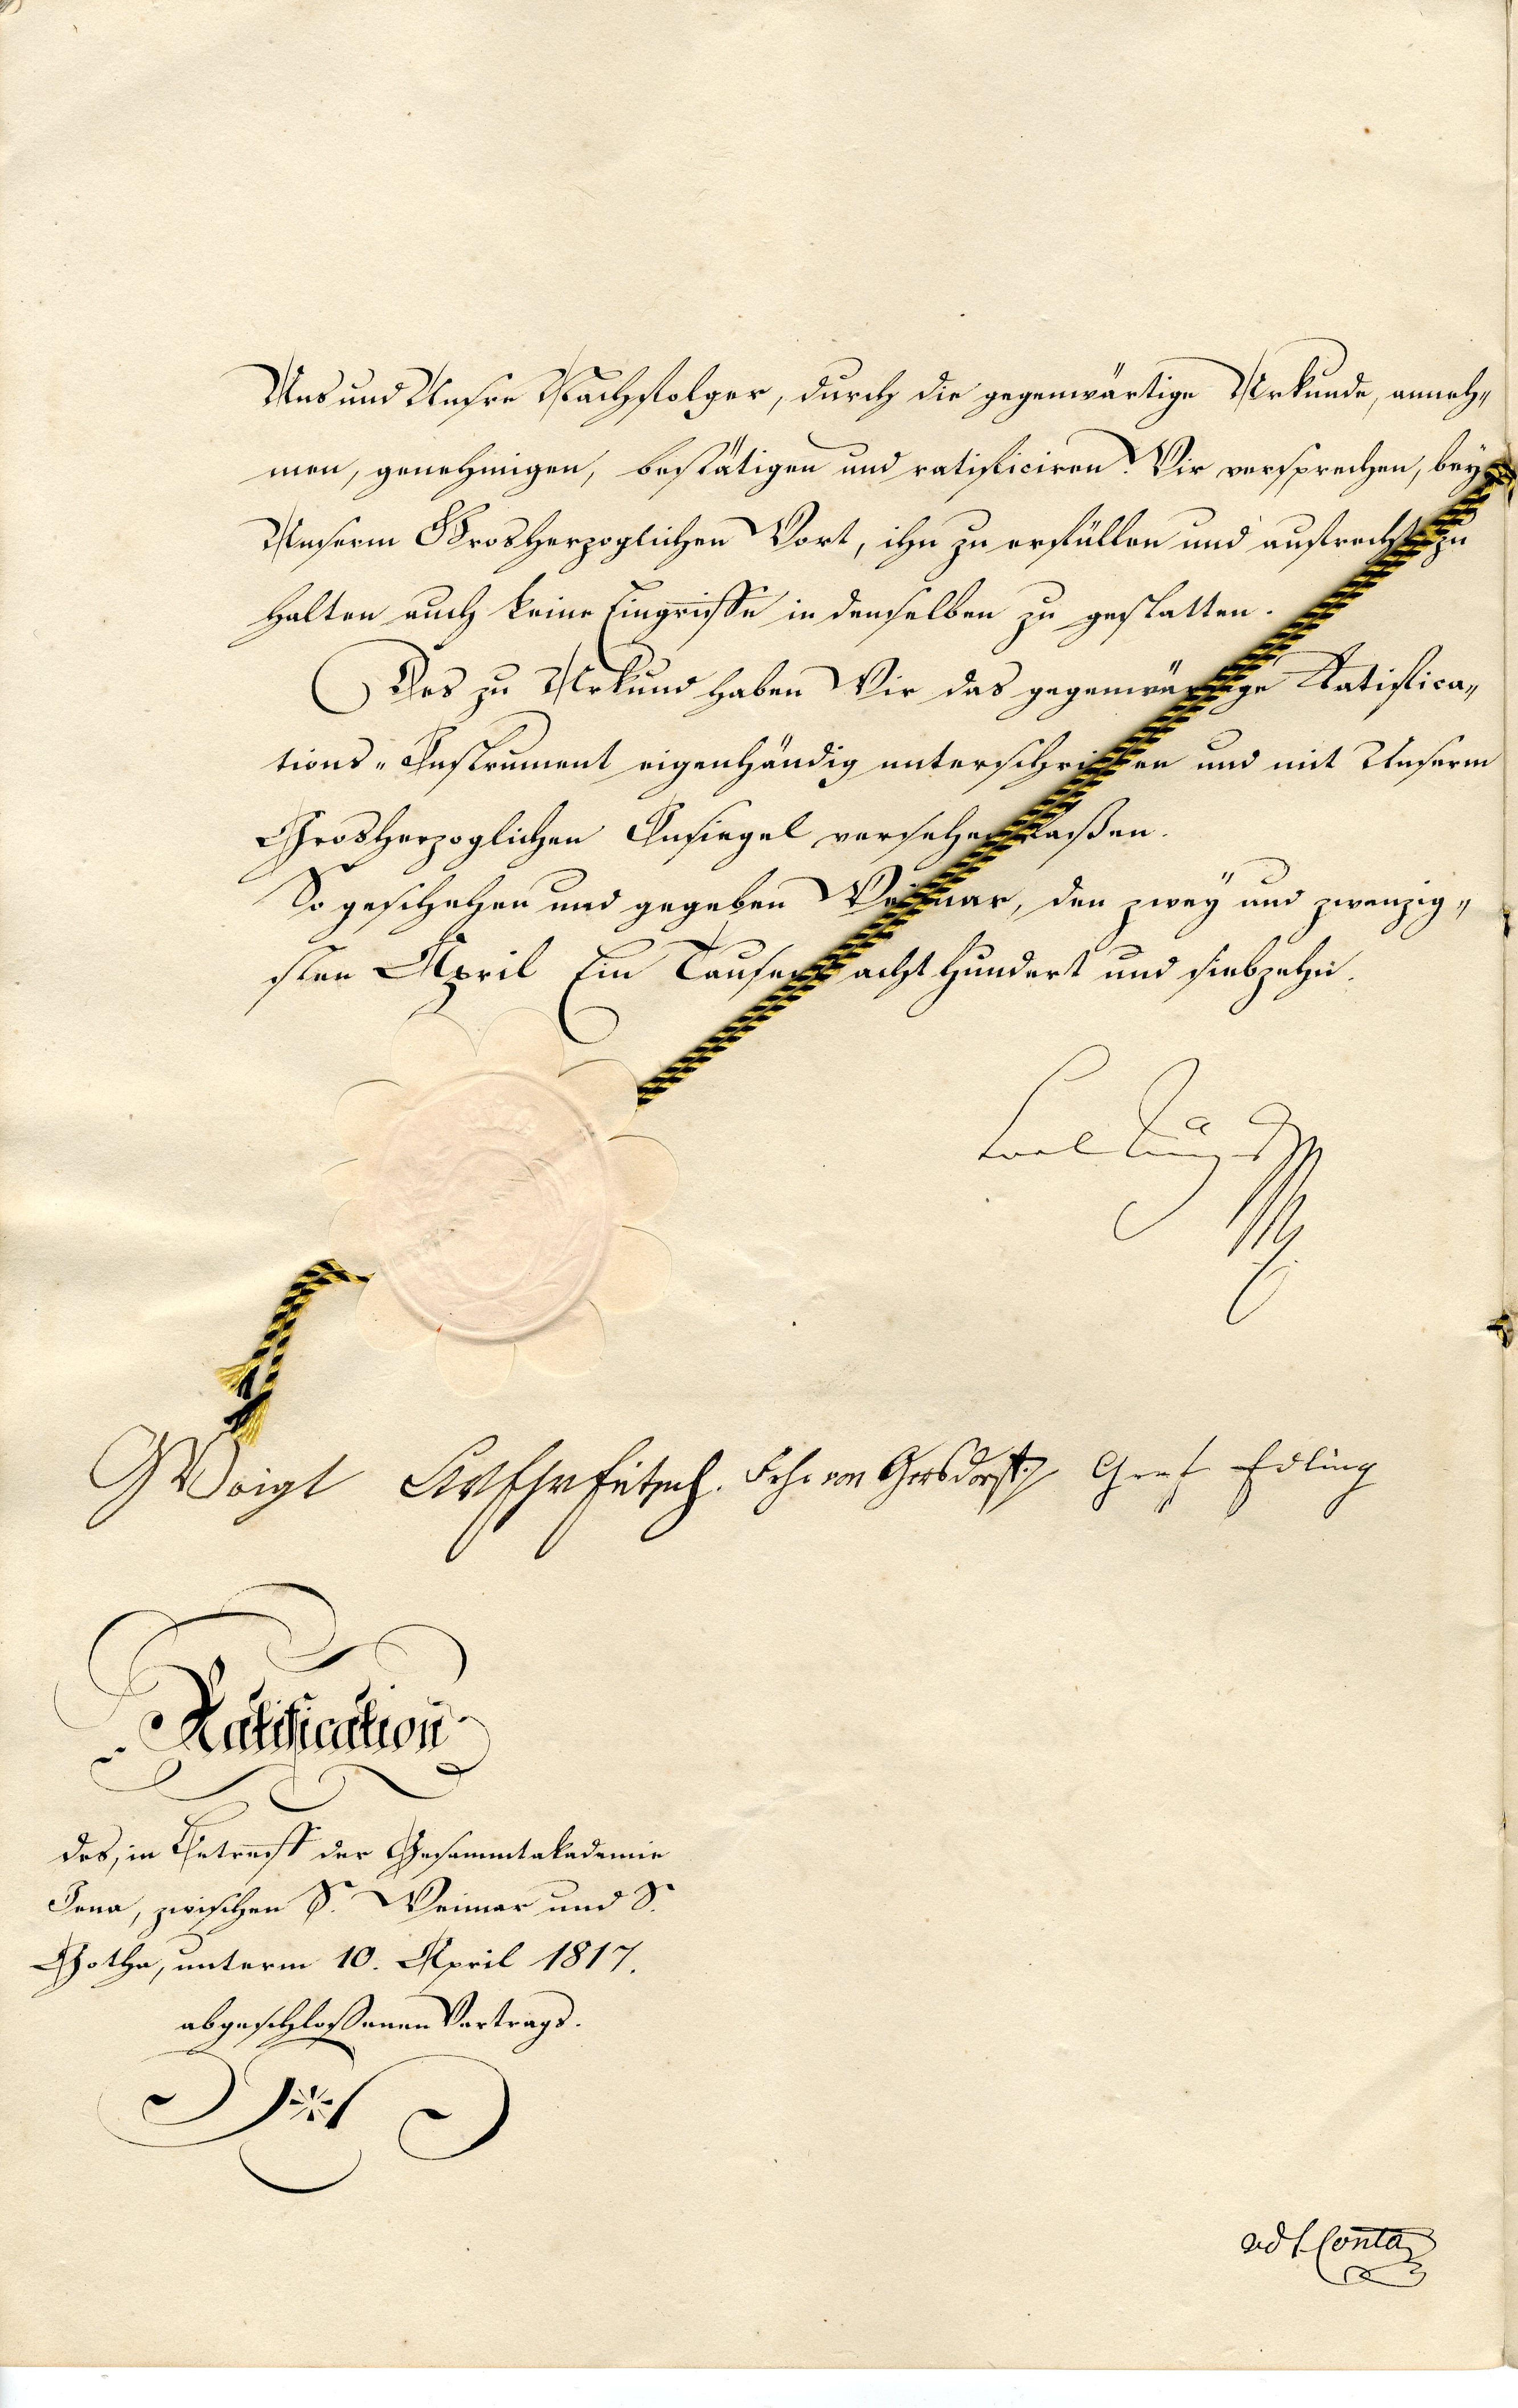 Uns und Unsre Nachfolger, durch die gegenwärtige Urkunde, anneh„
men, genehmigen, bestätigen und ratificiren. Wir versprechen, bey
Unserm Grosherzoglichen Wort, ihn zu erfüllen und aufrecht zu
halten auch keine Eingriffe in denselben zu gestatten.
Des zu Urkund haben Wir das gegenwärtige Ratifica„
tions„Instrument eigenhändig unterschrieben und mit Unserm
Grosherzoglichen Insiegel versehen laßen.
So geschehen und gegeben Weimar, den zwey und zwanzig„
sten April Ein Tausend acht hundert und siebzehn.
Carl August
GVoigt CWFhr Fritsch. Frhr von Gersdorff Graf Edling
Ratification
des, in Betreff der Gesammtakademie
Jena, zwischen S. Weimar und S.
Gotha, unterm 10. April 1817.
abgeschloßenen Vertrags.
vdt Conta